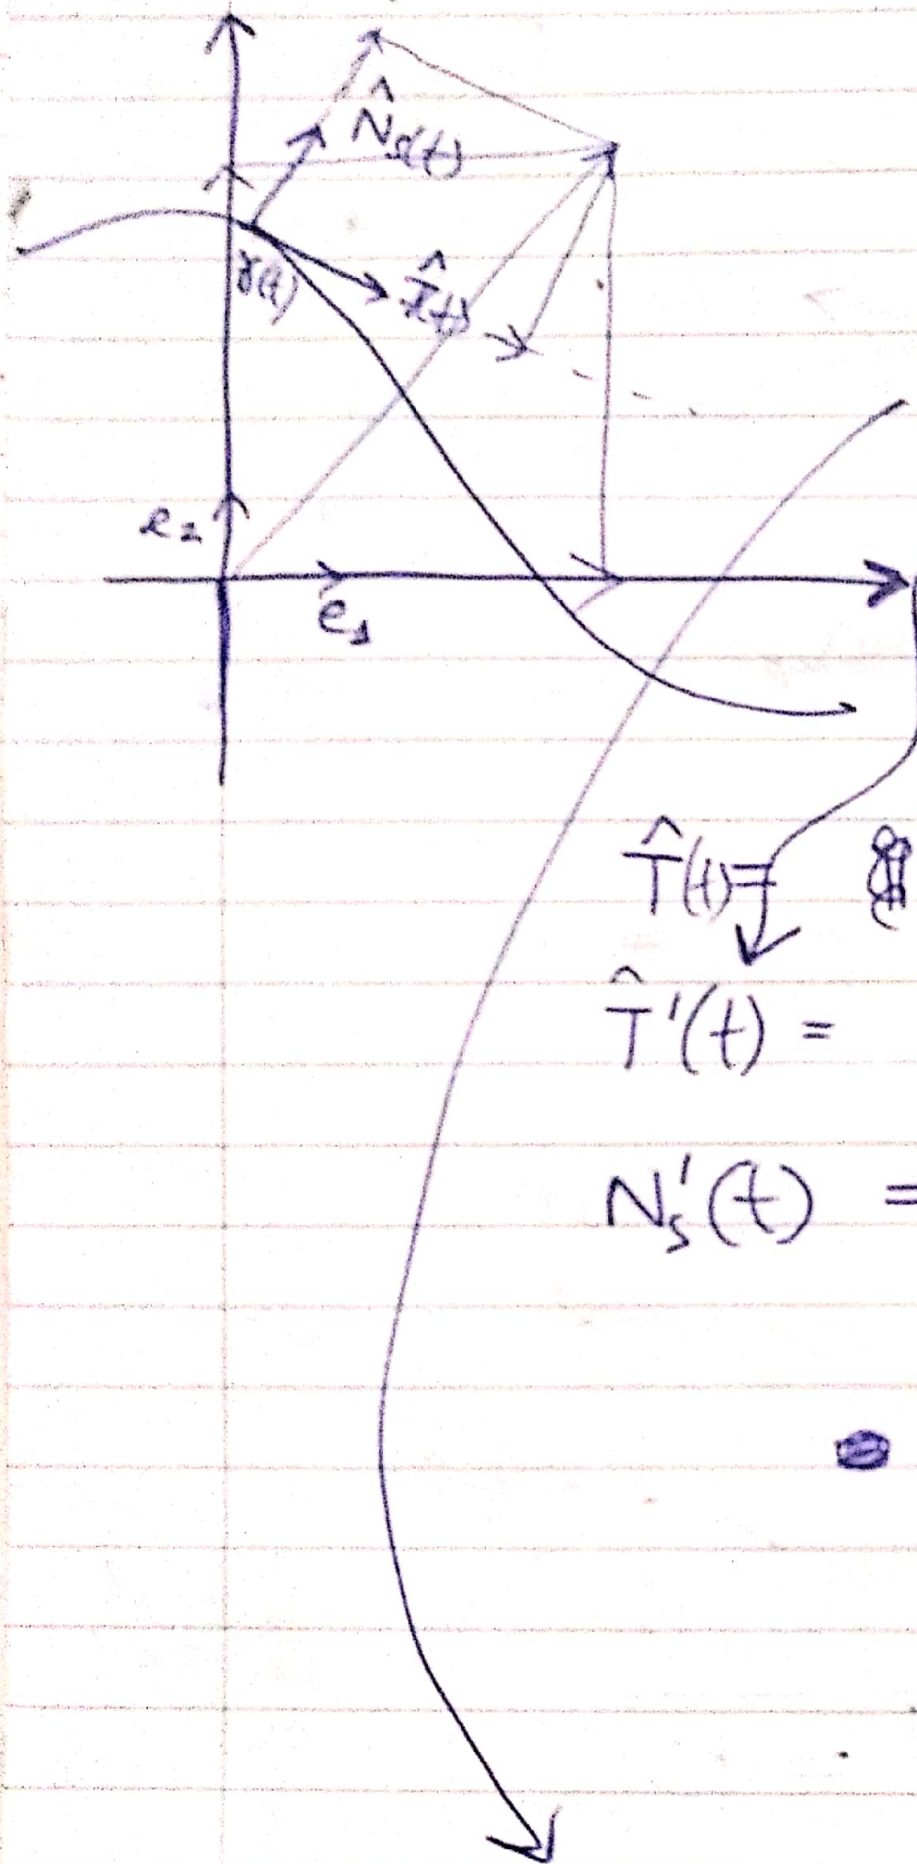 N̂s(t)
γ(t)
T̂(t)
e₂
e₁
T̂(t) =
T̂'(t) =
Ns'(t) =